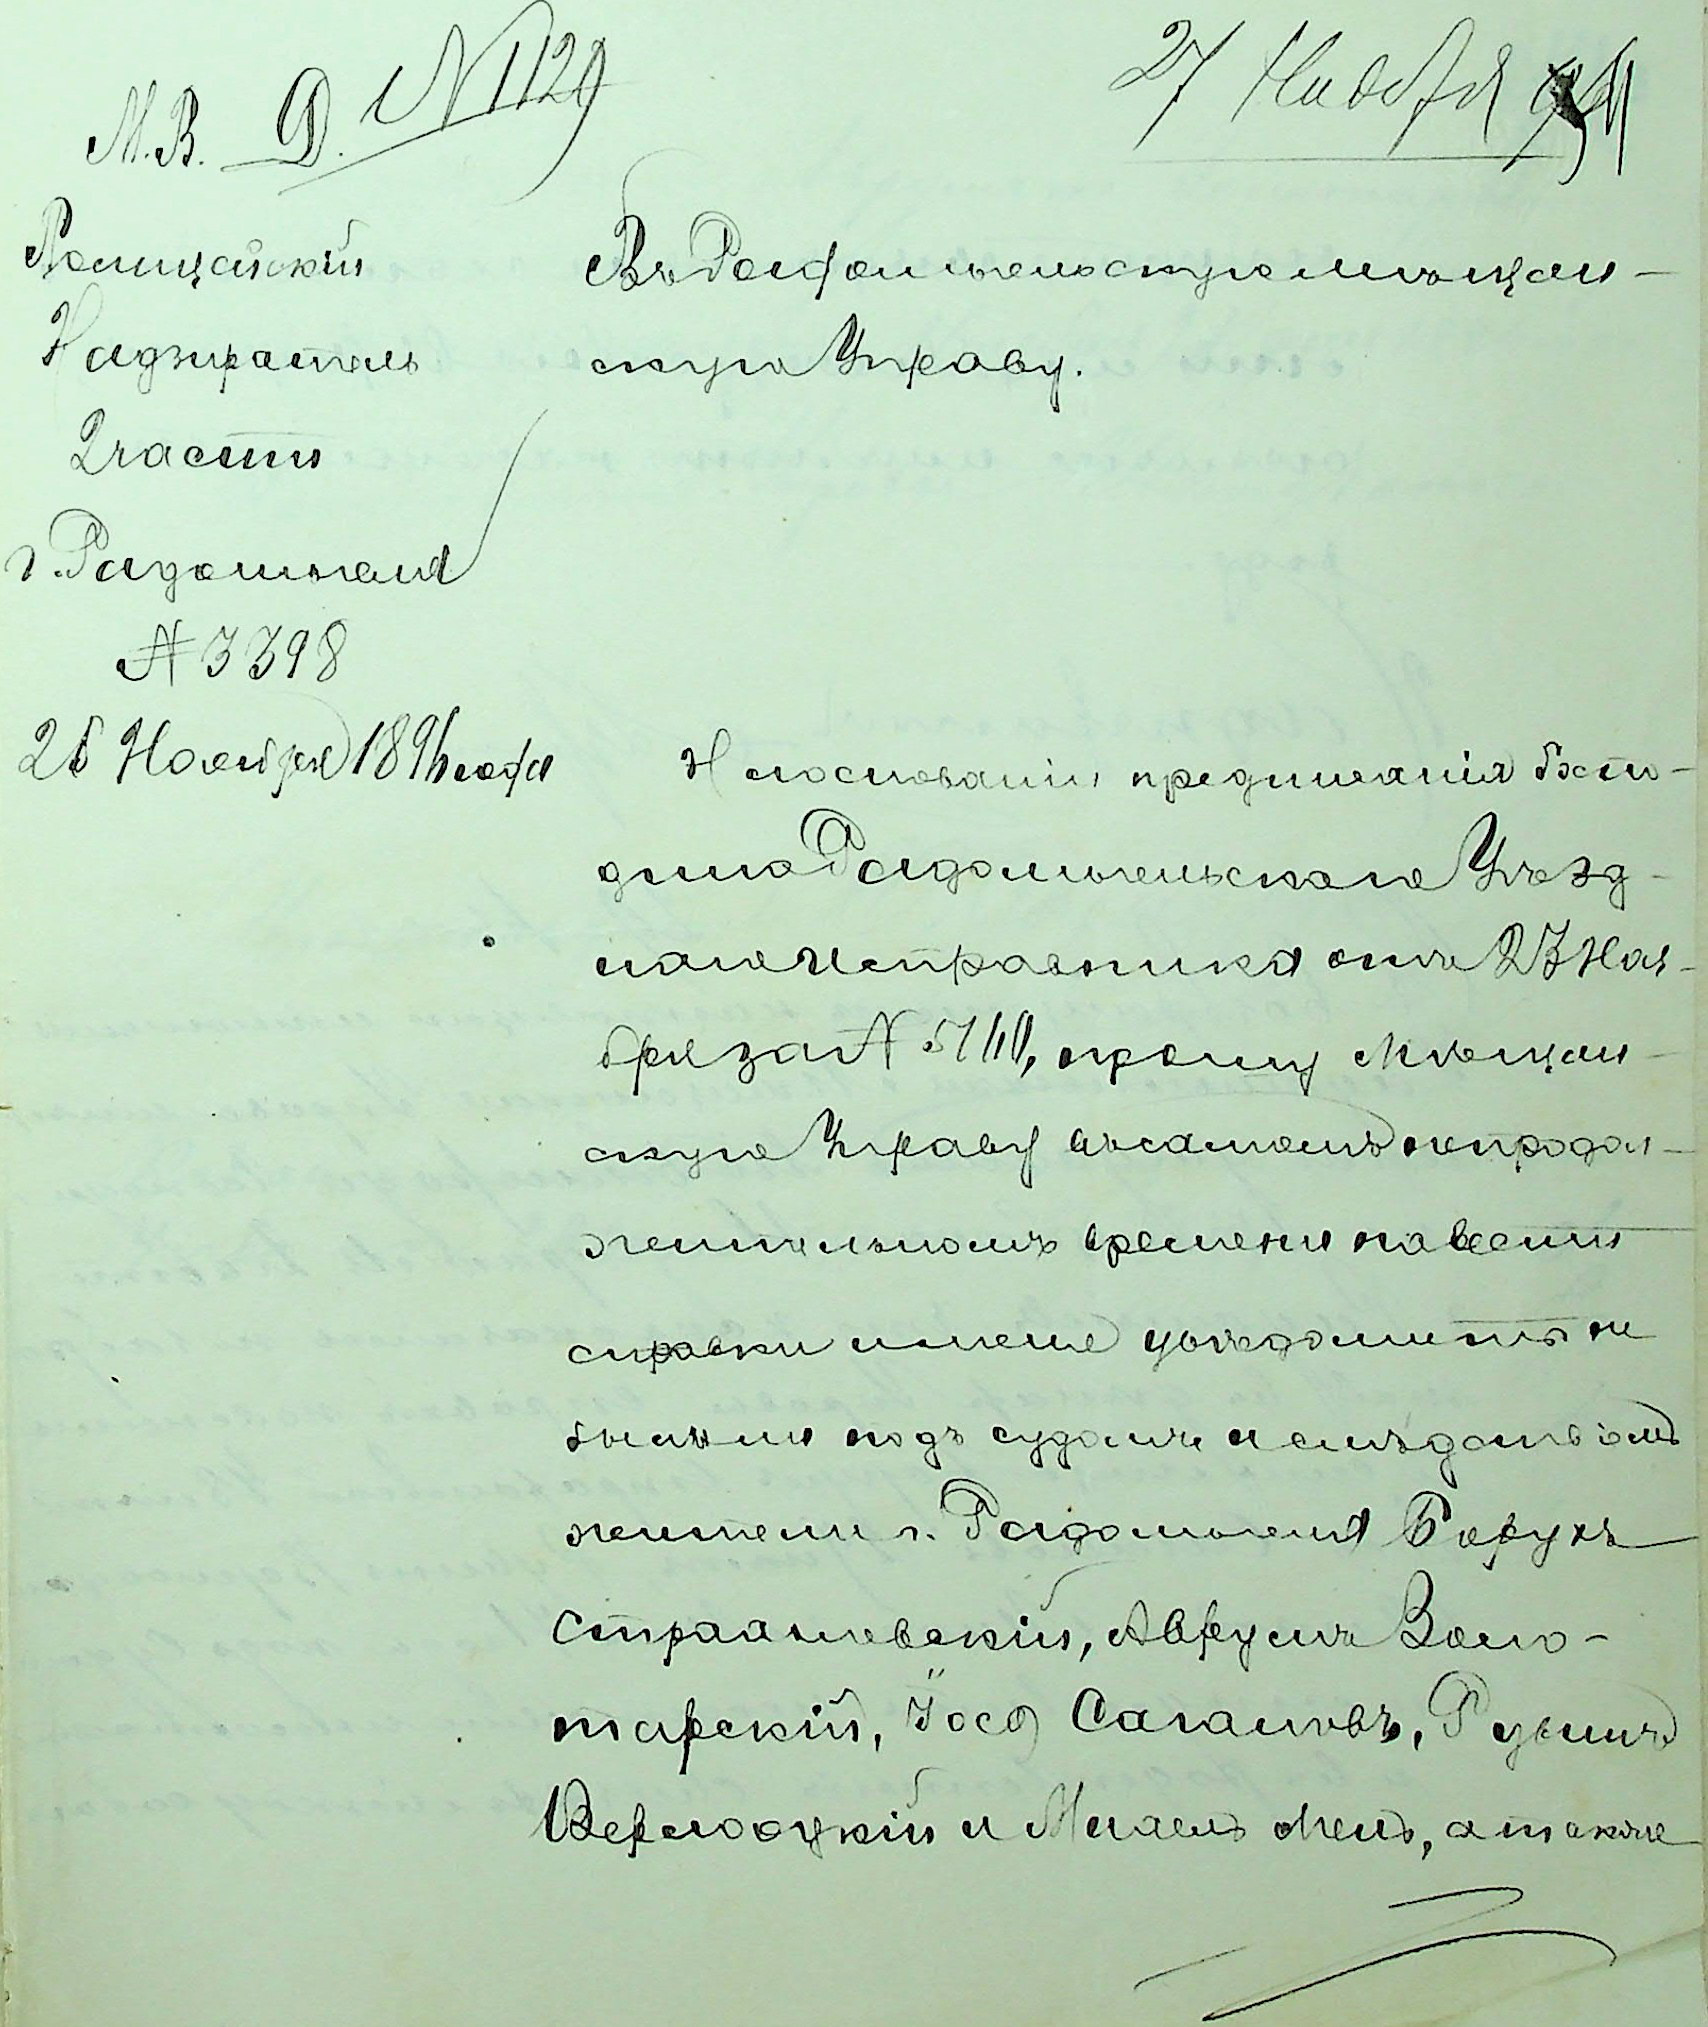 № 1129
27 Ноября
М.В.Д.
Полицейскій
Надзиратель
2 части
г. Радомысля
№ 3398
26 Ноября 1891 года
Въ Радомысльскую мѣщан-
скую Управу.
На основаніи предписанія Госпо-
дина Радомысльскаго Уѣзд-
наго Исправника отъ 23 Ноя-
бря за №, прошу Мѣщан-
скую Управу въ самомъ непродол-
жительномъ времени навести
справки и мене увѣдомить не
были ли подъ судомъ и слѣдствіемъ
жители г. Радомысля Борухъ
Страшевскій, Аврумъ Золо-
тарскій, Іосъ Сагаловъ, Рувинъ
и Михель Мень, а также